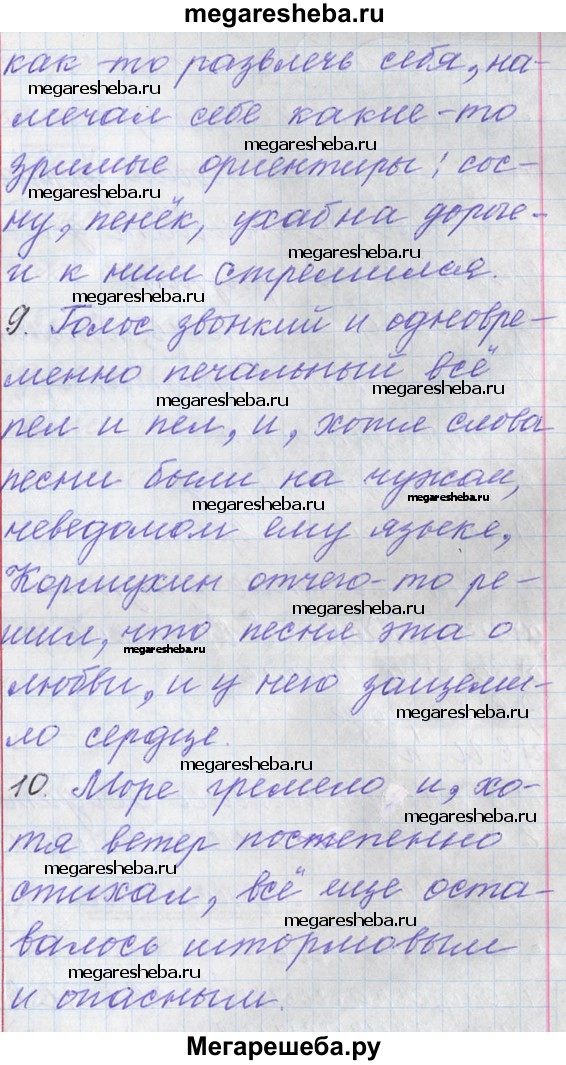 megaresheba.ru
как-то развлечь себя, на-
megaresheba.ru
мечал себе какие-то
megaresheba.ru
зримые ориентиры: сос-
megaresheba.ru
ну, пенёк, ухаб на дороге-
megaresheba.ru
и к ним стремился.
megaresheba.ru
9. Голос звонкий и одновре-
megaresheba.ru
менно печальный всё
megaresheba.ru
megaresheba.ru
пел и пел, и, хотя слова
песни были на чужом,
megaresheba.ru
megaresheba.ru
неведомом ему языке,
Кормухин отчего-то ре-
megaresheba.ru
шил, что песня эта о
megaresheba.ru
любви, и у него защеми-
megaresheba.ru
ло сердце.
megaresheba.ru
10. Море гремело и, хо-
megaresheba.ru
тя ветер постепенно
megaresheba.ru
стихал, всё еще оста-
megaresheba.ru
валось штормовым
megaresheba.ru
и опасным.
Мегарешеба.ру